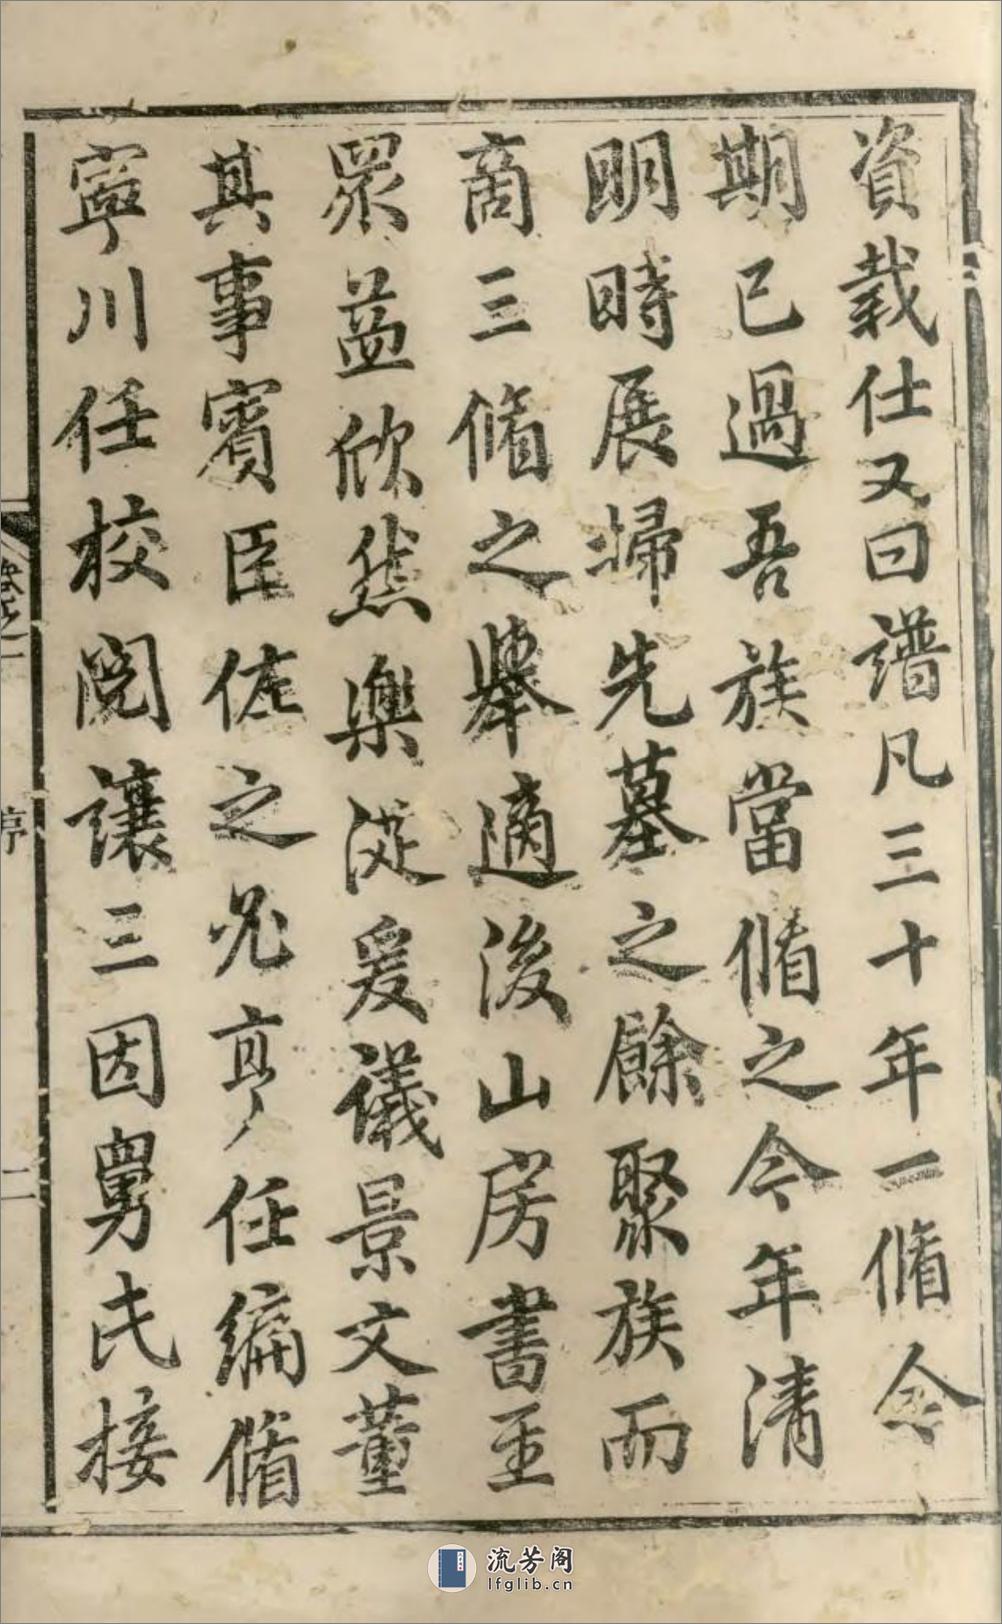 資裁仕又曰譜凡三十年一脩今
期已過吾族當脩之今年清
明時展掃先墓之餘聚族而
商三脩之舉適後山房書至
眾益欣然樂從爰議景文董
其事賓臣佐之兆亨任編脩
寧川任校閱讓三因舅氏接
卷之一
序
二
流芳阁
lfglib.cn